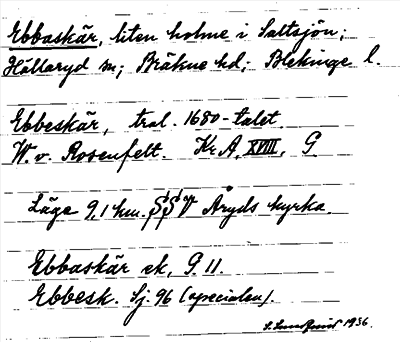 Ebbaskär, liten holme i Saltsjön;
Hällaryd sn; Bräkne hd; Blekinge l.
Ebbeskär, tral. 1680-talet
W. v. Rosenfelt. Kr. A. XVIII. G.
Läge 9,1 km. SSV Åryds kyrka.
Ebbaskär ek, G. 11.
Ebbesk. Sj. 96 (specialen).
S. Lundquist 1936.